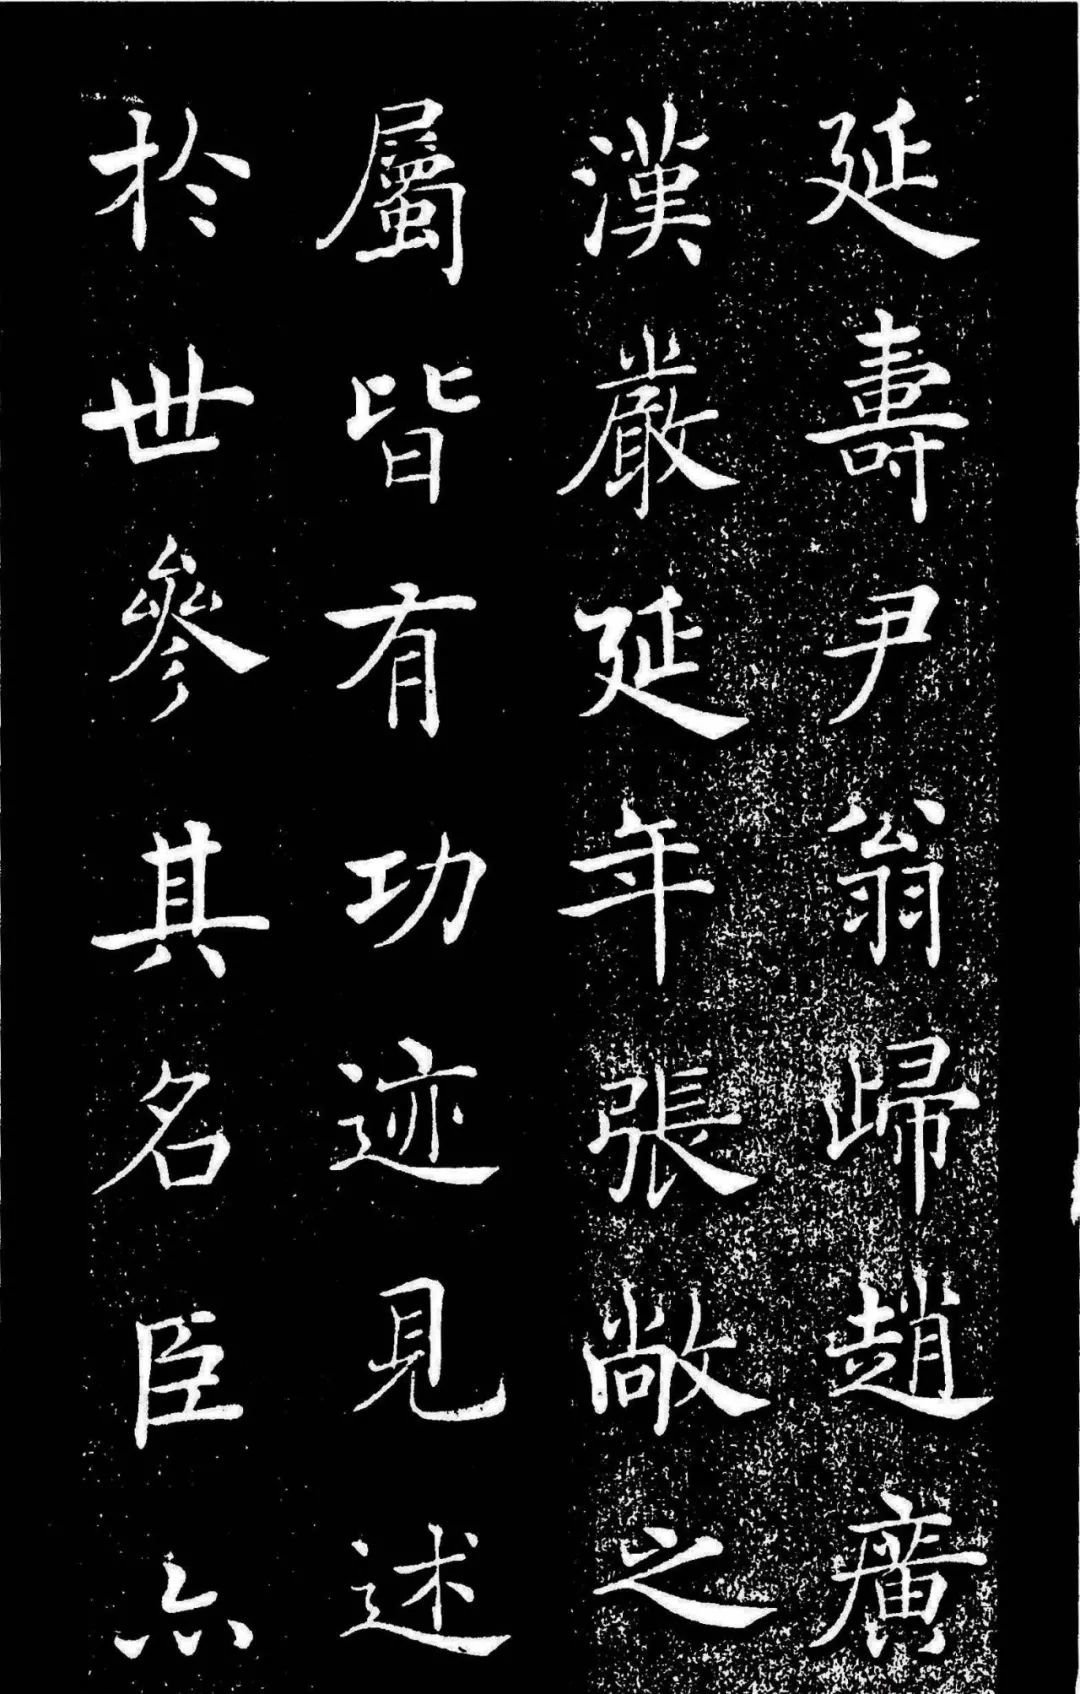 延壽尹翁歸趙廣
漢嚴延年張敞之
屬皆有功迹見述
於世參其名臣亦